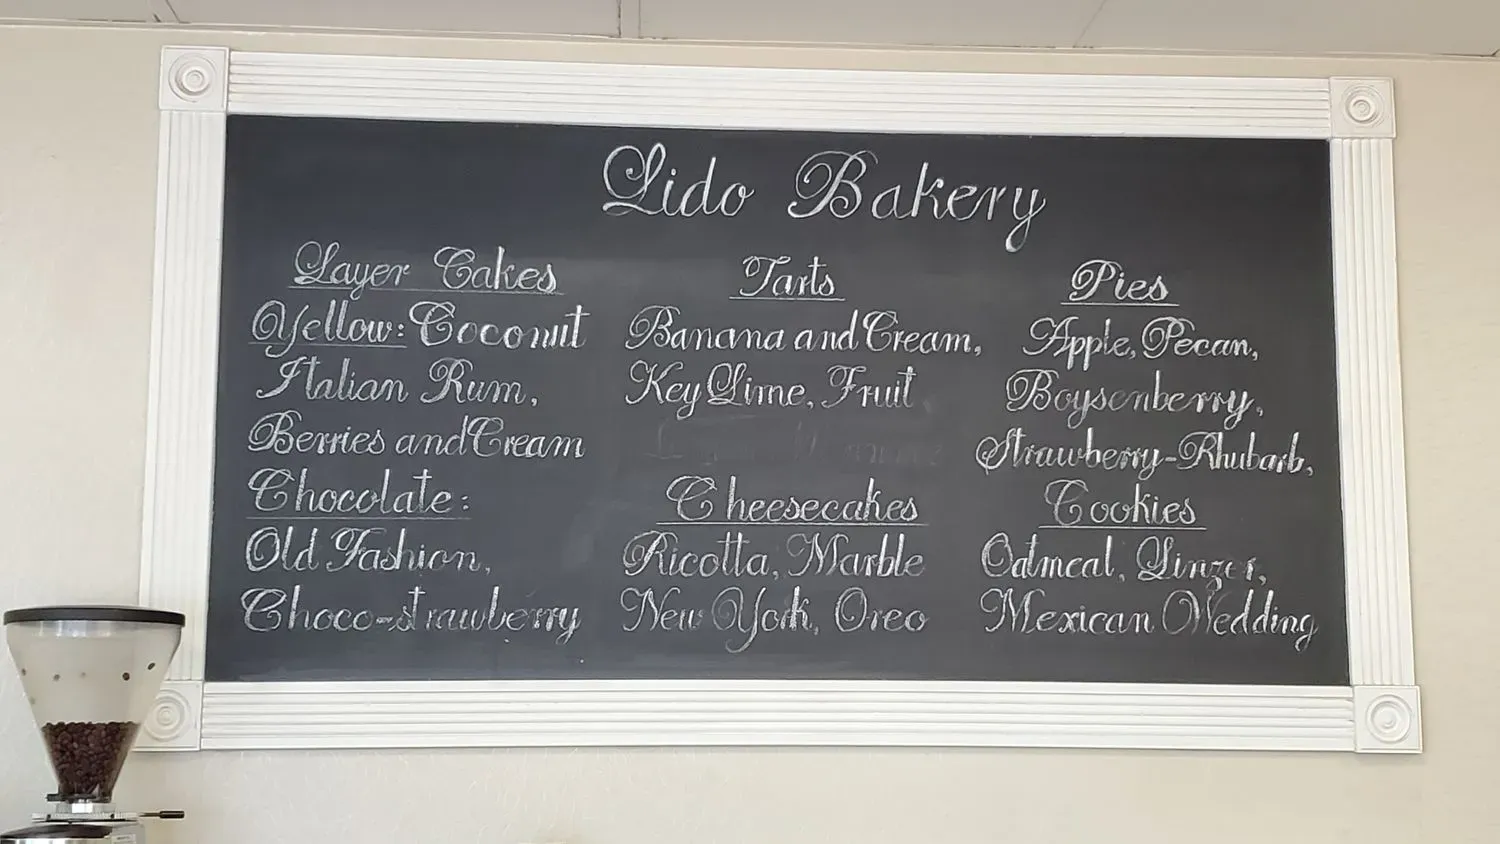 Lido Bakery
Layer Cakes
Yellow: Coconut
Italian Rum,
Berries and Cream
Chocolate:
Old Fashion,
Choco-strawberry
Tarts
Banana and Cream,
Key Lime, Fruit
Cheesecakes
Ricotta, Marble
New York, Oreo
Pies
Apple, Pecan,
Boysenberry,
Strawberry-Rhubarb,
Cookies
Oatmeal, Linzer,
Mexican Wedding